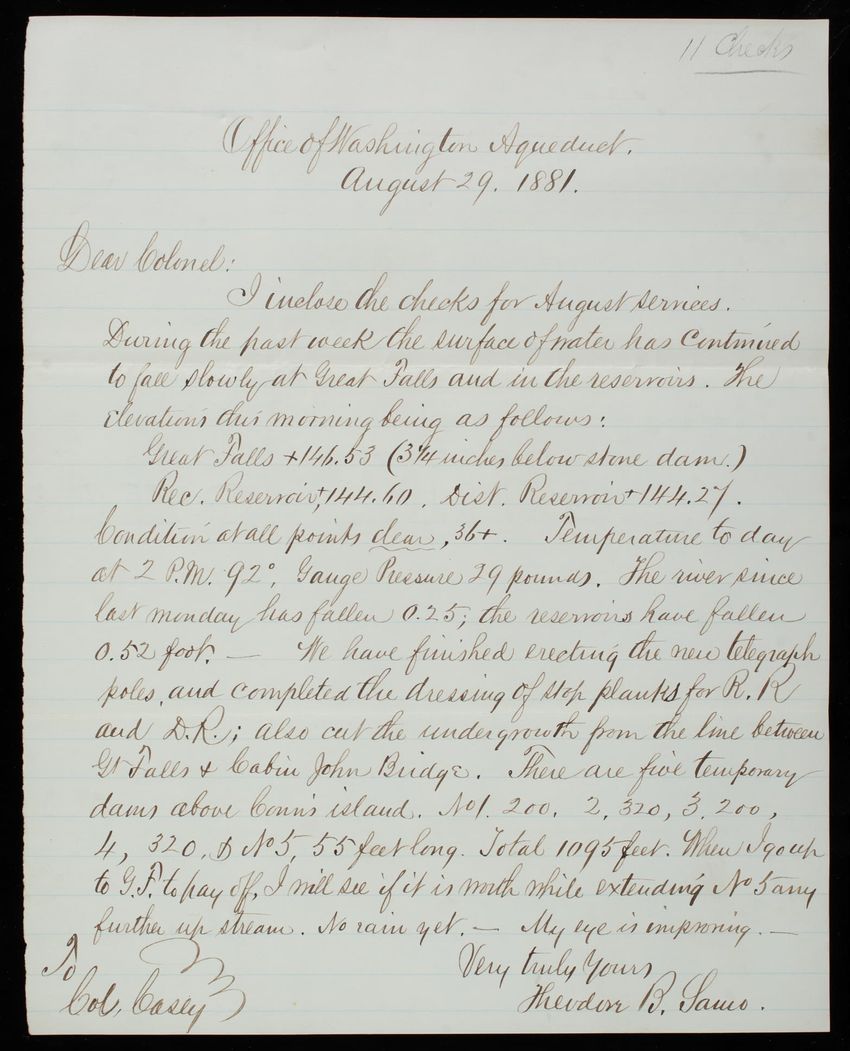 11 Checks
Office of Washington Aqueduct.
August 29. 1881.
Dear Colonel:
I inclose the checks for August services.
During the past week the surface of water has continued
to fall slowly at Great Falls and in the reservoirs. The
elevations this morning being as follows:
Great Falls +146.53 (3 1/4 inches below stone dam.)
Rec. Reservoir +144.60. Dist. Reservoir +144.27.
Condition at all points clear, 36+. Temperature to day
at 2 P.M. 92°, Gauge Pressure 29 pounds. The river since
last monday has fallen 0.25; the reservoirs have fallen
0.52 foot. — We have finished erecting the new telegraph
poles, and completed the dressing of stop planks for R. R
and D.R.; also cut the undergrowth from the line between
Gt Falls & Cabin John Bridge. There are five temporary
dams above Conn's island. No 1. 200. 2, 320, 3, 200,
4, 320. & No 5, 55 feet long. Total 1095 feet. When I go up
to G.F. to pay off, I will see if it is worth while extending No 5 any
further up stream. No rain yet. — My eye is improving. —
Very truly Yours
Theodore B. Samo.
To
Col. Casey